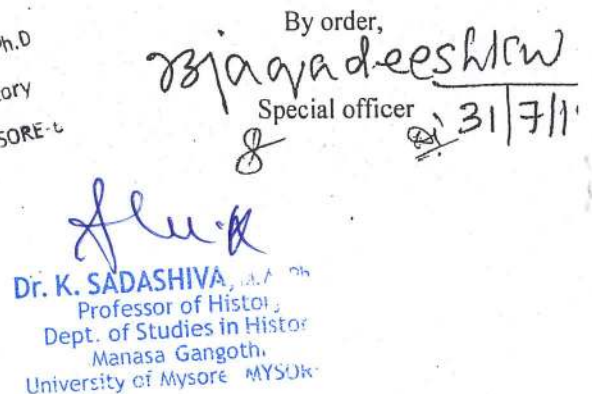 h.D
ory
SORE-
By order,
Special officer
31/7/1
Dr. K. SADASHIVA,
Professor of Histor
Dept. of Studies in Histor
Manasa Gangoth
University of Mysore MYSOR